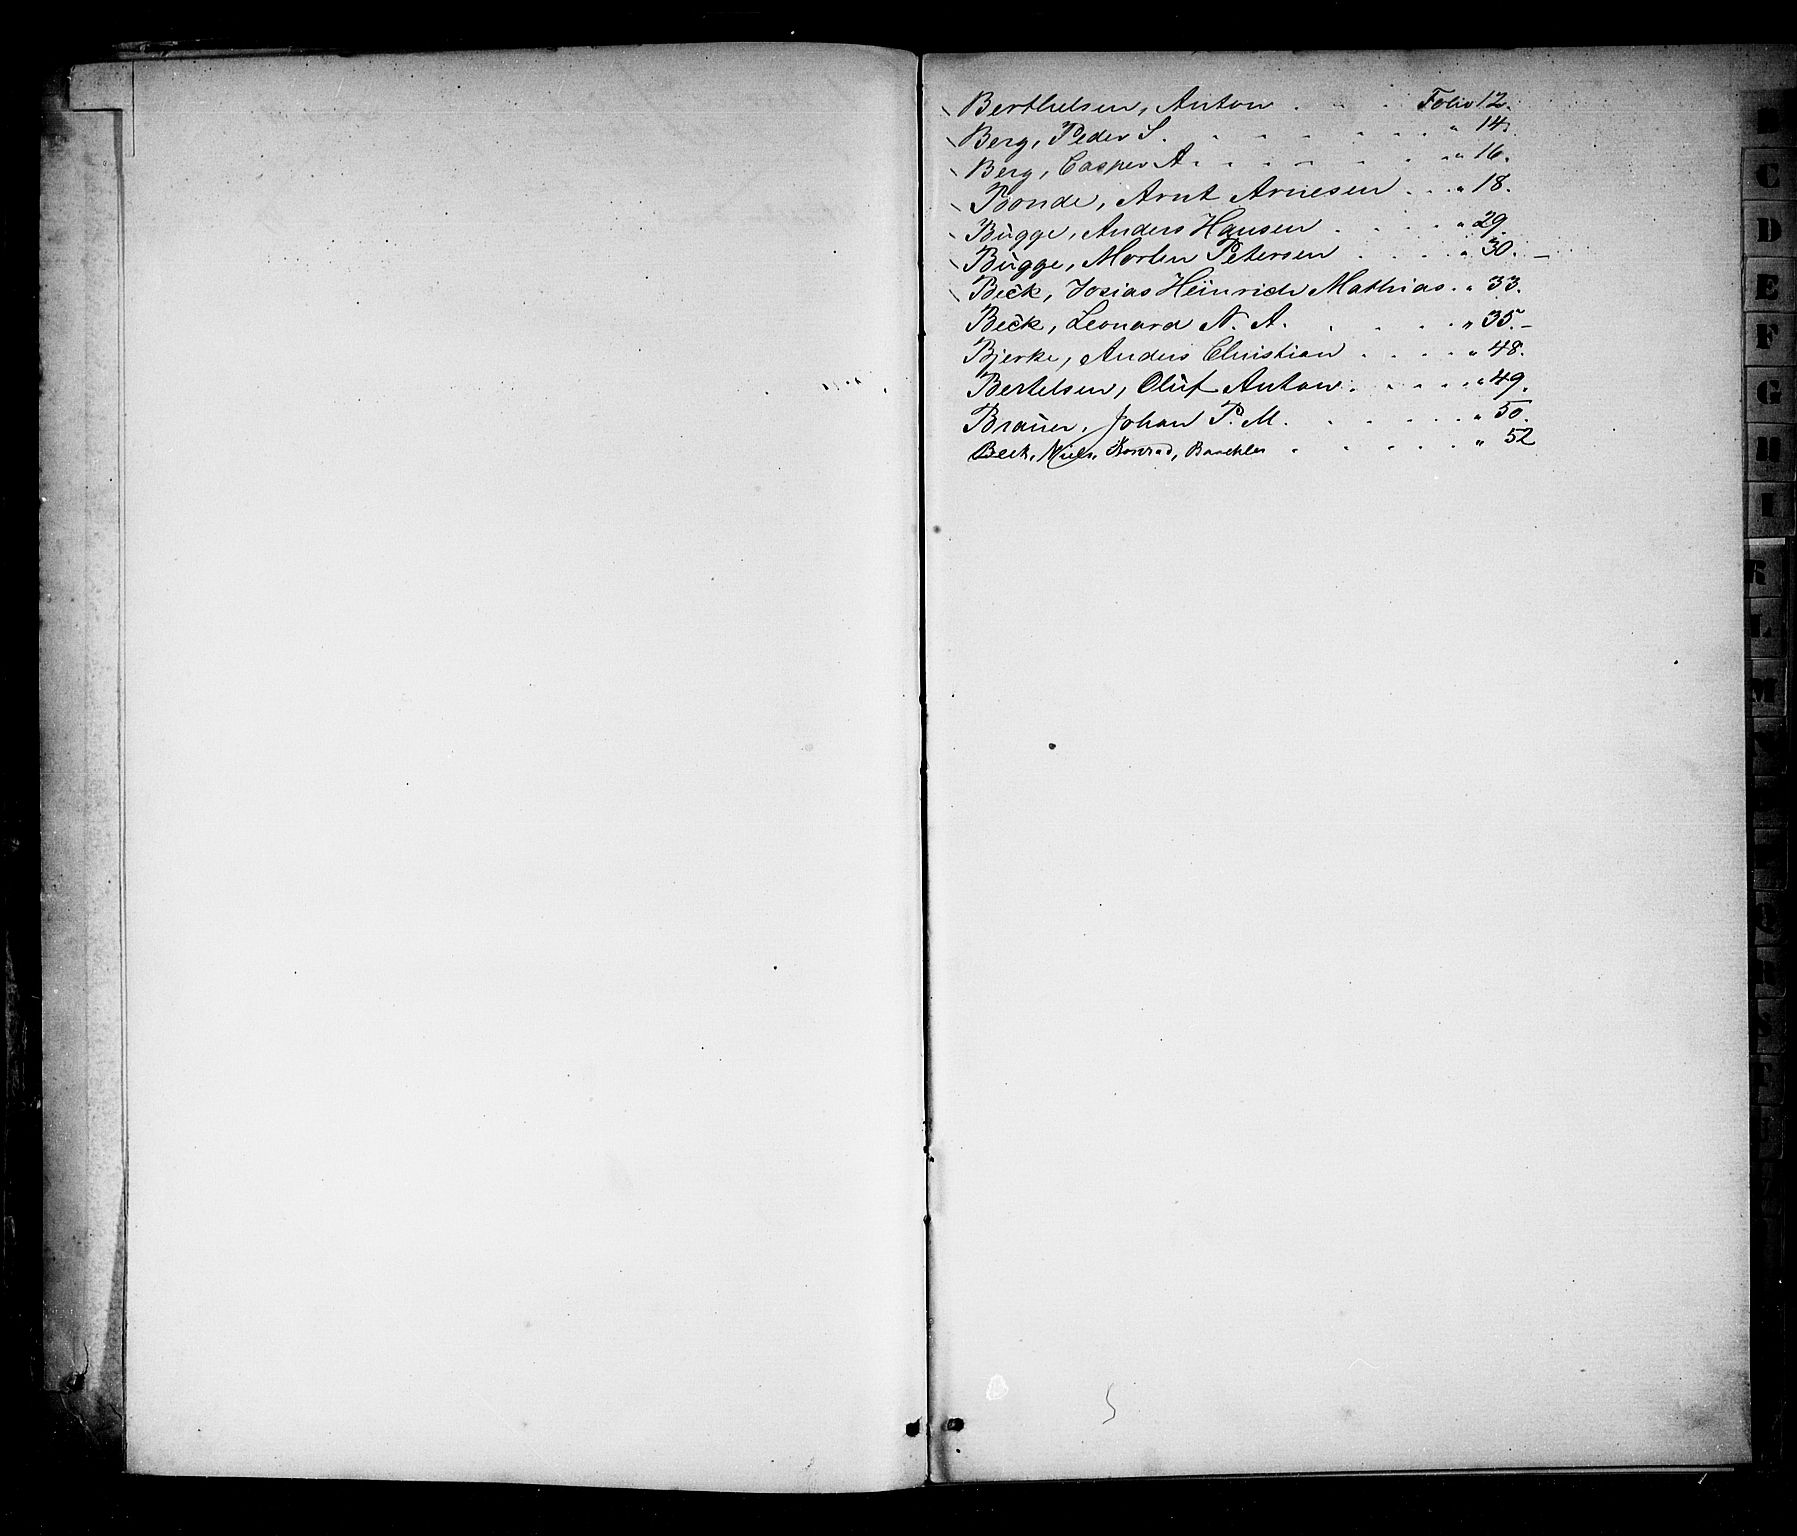 Berthelsen, Anton . . . Folio 12.
Berg, Peder S. . . . . . . " 14.
Berg, Casper A. . . . . . . " 16.
Bonde, Arnt Arnesen . . . " 18.
Bügge, Anders Hansen . . . . " 29.
Bügge, Morten Petersen . . . . " 30. –
Beck, Josias Heinrich Mathias . " 33.
Beck, Leonard N. A. . . . . . " 35. –
Bjerke, Anders Christian . . . . " 48.
Bertelsen, Olüf Anton . . . . . " 49.
Braüer, Johan P. M. . . . . . " 50.
Beck, Niels, Konrad, . . . . . " 52
B
C
D
E
F
G
H
I
K
L
M